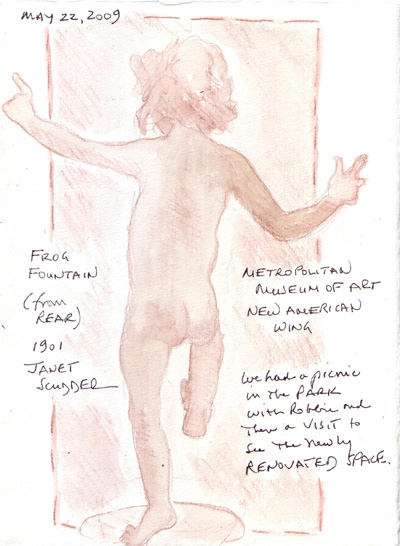 MAY 22, 2009
FROG
FOUNTAIN
(from
REAR)
1901
JANET
SCUDDER
METROPOLITAN
MUSEUM OF ART
NEW AMERICAN
WING
We had a picnic
in the PARK
with Robbie and
Then a VISIT to
See The Newly
RENOVATED SPACE.